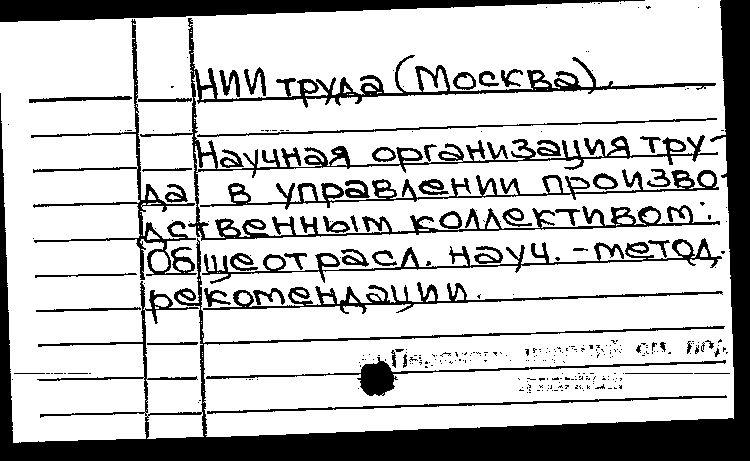 НИИ труда (Москва).
Научная организация тру-
да в управлении произво-
дственным коллективом:
Общеотрасл. науч.-метод.
рекомендации.
см. под